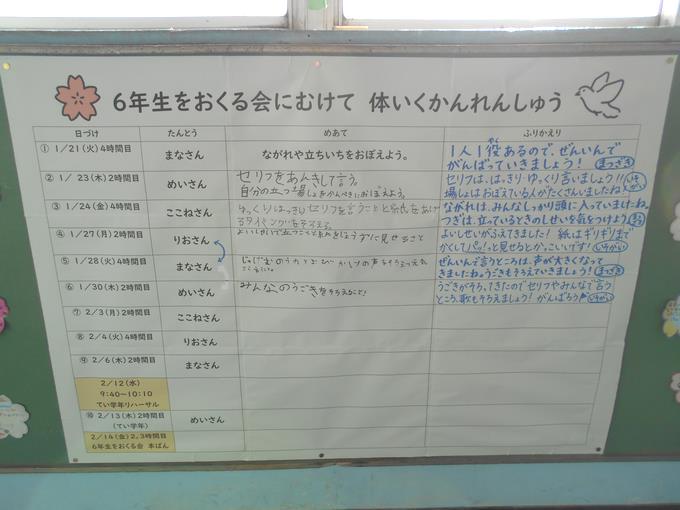 6年生をおくる会にむけて 体いくかんれんしゅう
日づけ たんとう めあて ふりかえり
① 1/21(火)4時間目 まなさん ながれや立ちいちをおぼえよう。
1人1役あるので、ぜんいんで
がんばっていきましょう! まつざき
② 1/ 23(木)2時間目 めいさん セリフをあんきして言う。
自分の立つ場しょをかんぺきにおぼえよう。
セリフは、はっきり・ゆっくり言いましょう!!
場しょはおぼえている人がたくさんいましたね
③ 1/24(金)4時間目 ここねさん ゆっくりはっきりセリフを言うことと
るタイミングをそろえる。
ながれは、みんなしっかり頭に入っていましたね。
つぎは、立っているときのしせいを気をつけよう。
④ 1/27(月)2時間目 りおさん よいしせいで立つことと
じょうずに見せること
よいしせいがふえてきました! 紙はギリギリまで
かくしてパッ!っと見せるとかっこいいです!
⑤ 1/28(火)4時間目 まなさん
かけの声をそろえ
ぜんいんで言うところは、声が大きくなって
きましたね。うごきもそろえていきましょう! まつざき
⑥ 1/30(木)2時間目 めいさん みんなのうごきをそろえること!
うごきがそろってきたのでセリフやみんなで言う
ところ、歌もそろえましょう! がんばろう
⑦ 2/3(月)2時間目 ここねさん
⑧ 2/4(火)4時間目 りおさん
⑨ 2/6(木)2時間目 まなさん
2/12(水)
9:40~10:10
てい学年リハーサル
⑩ 2/13(木)2時間目 めいさん
(てい学年)
2/14(金)2,3時間目
6年生をおくる会 本ばん